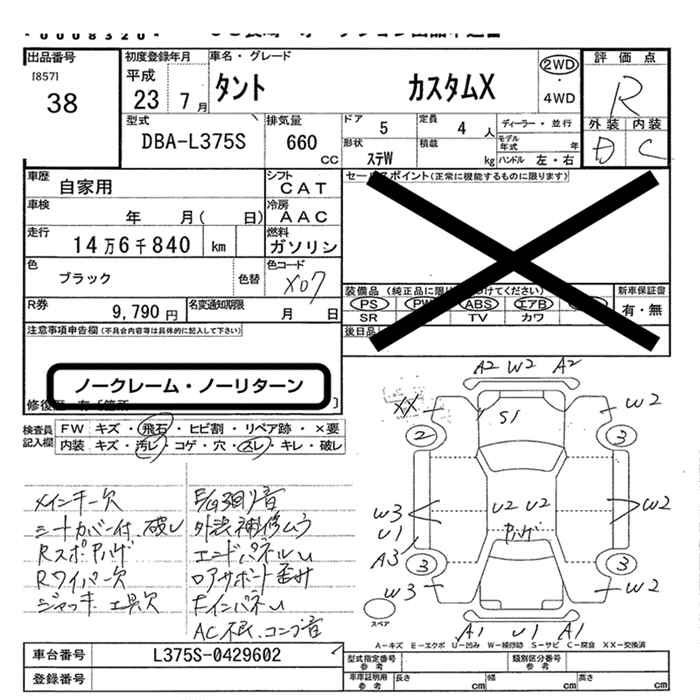 0008320
出品番号
[857]
38
初度登録年月
平成
23 7月
車名・グレード
タント カスタムX
2WD
・
4WD
評価点
R
外装 内装
D C
型式
DBA-L375S
排気量
660
cc
ドア 5
定員 4 人
ディーラー・並行
モデル年式 年
形状 ステW
積載 kg
ハンドル 左・右
車歴
自家用
シフト
CAT
セールスポイント(正常に機能するものに限ります)
車検
年 月( 日)
冷房
AAC
走行
14万6千840 km
燃料
ガソリン
色
ブラック
色替
色コード
X07
R券
9,790円
名変通知期限
月 日
装備品(純正品に限り
けてください)
新車保証書
PS PW ABS エアB
SR TV カワ
有・無
後日品
注意事項申告欄(不具合内容等は具体的に記入して下さい)
ノークレーム・ノーリターン
検査員記入欄
FW キズ・飛石・ヒビ割・リペア跡・×要
内装 キズ・汚レ・コゲ・穴・スレ・キレ・破レ
メインキー欠
シートカバー付、破レ
Rスポ
Rワイパー欠
ジャッキ、工具欠
E/G 音
外装補修ムラ
エンドパネルU
ロアサポート歪み
FインパネU
AC不良、コンプ音
A2 W2 A2
XX
S1
W2
2
3
W3
U1
A3
U2 U2
W2
3
3
W3
W2
スペア
A1 U1 A1
A－キズ E－エクボ U－凹み W－補修跡 S－サビ C－腐食 XX－交換済
車台番号
L375S-0429602
登録番号
型式指定番号
参考
類別区分番号
参考
車庫証明用
参考
長さ cm
幅 cm
高さ cm